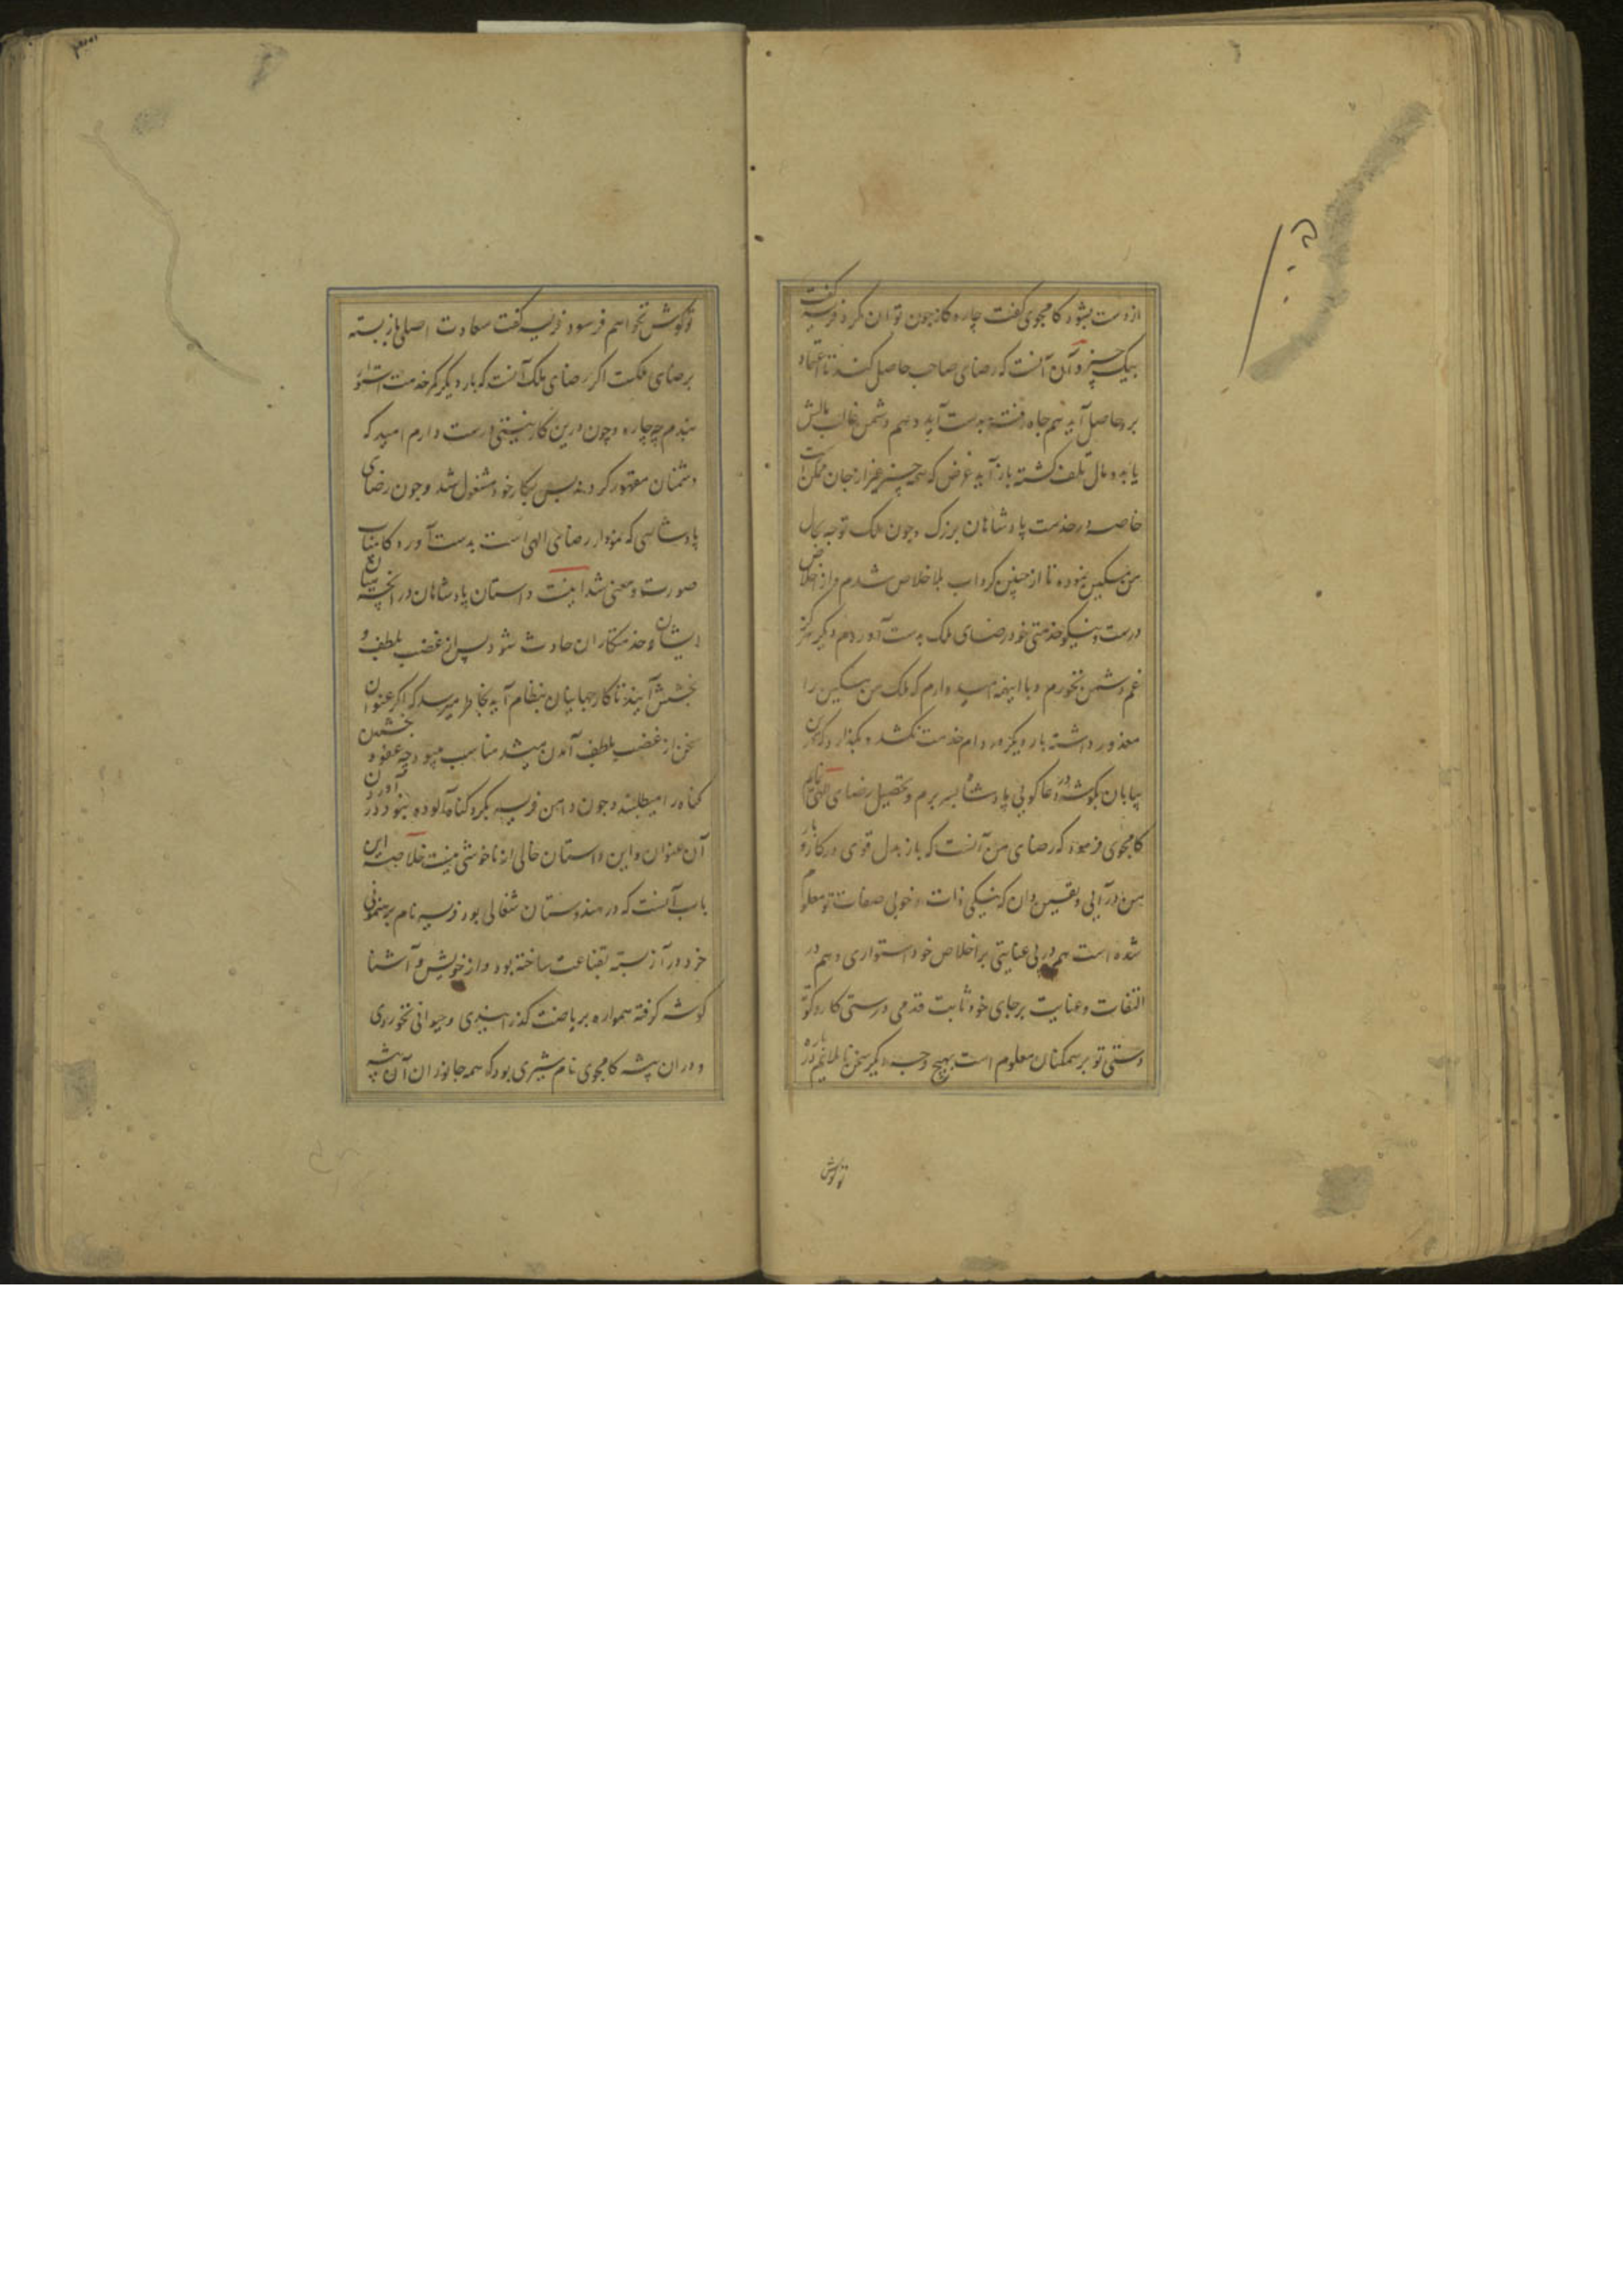 از دست بشود کامجوی گفت چاره کار چون توان کرد فریسه گفت
بیک چیز و آن آنست که رضای صاحب حاصل کند تا اعتماد
برو حاصل آید هم جاه رفته بدست آید و هم دشمن غالب مالش
یابد و مال تلف گشته باز آید غرض که همه چیز غیر از جان ممکن است
خاصه در خدمت پادشاهان بزرگ و چون ملک توجه بحال
من مسکین نموده تا از چنین گرداب بلا خلاص شدم و از اخلاص
درست و نیکو خدمتی خود رضای ملک بدست آوردم دیگر هرگز
غم دشمن نخورم و با اینهمه امید وارم که ملک من مسکین را
معذور داشته بار دیگر در دام خدمت نکشد و بگذارد که من
بیابان بگوشه در دعا گویی پادشاه بسر برم و تحصیل رضای الهی نمایم
کامجوی فرمود که رضای من آنست که باز بدل قوی در کار و بار
من در آیی و یقین دان که نیکی ذات و خوبی صفات تو معلوم
شده است هم در بی عنایتی بر اخلاص خود استواری و هم در
التفات و عنایت بر جای خود ثابت قدمی درستی کار و نکو
دستی تو بر همکنان معلوم است بهیچ وجه دیگر سخن نا ملایم درباره
تو گوش
تو گوش نخواهم فرسود فریسه گفت سعادت اصلی باز بسته
برضای ملکست اگر رضای ملک آنست که بار دیگر کمر خدمت استوار
بندم چه چاره و چون درین کار نیتی درست دارم امید که
دشمنان مقهور گردند پس بکار خود مشغول شد و چون رضای
پادشاهی که نمودار رضای الهی است بدست آورد کامیاب
صورت و معنی شد اینست داستان پادشاهان در آنچه میان
ایشان و خدمتکاران حادث شود پس از غضب بلطف و
بخشش آیند تا کار جهانیان بنظام آید بخاطر میرسد که اگر عنوان
سخن از غضب بلطف آمدن میشد مناسب مینمود چه عفو و بخشش
گناه را میطلبند و چون دامن فریسه بگرد گناه آلوده نبود در آوردن
آن عنوان و این داستان خالی از ناخوشی نیست خلاصه این
باب آنست که در هندوستان شغالی بود فریسه نام برهنمونی
خرد در آز بسته بقناعت ساخته بود و از خویش و آشنا
گوشه گرفته همواره بریاضت گذرانیدی و حیوانی نخوردی
و در آن بیشه کامجوی نام شیری بود که همه جانوران آن بیشه